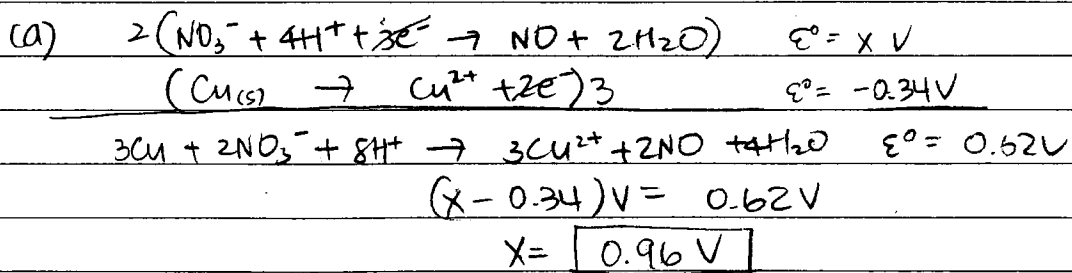 (a) 2(NO₃⁻ + 4H⁺ + 3e⁻ → NO + 2H₂O) ε° = x V
(Cu(s) → Cu²⁺ + 2e⁻)3 ε° = -0.34V
3Cu + 2NO₃⁻ + 8H⁺ → 3Cu²⁺ + 2NO + 4H₂O ε° = 0.62V
(x - 0.34)V = 0.62V
x = 0.96 V